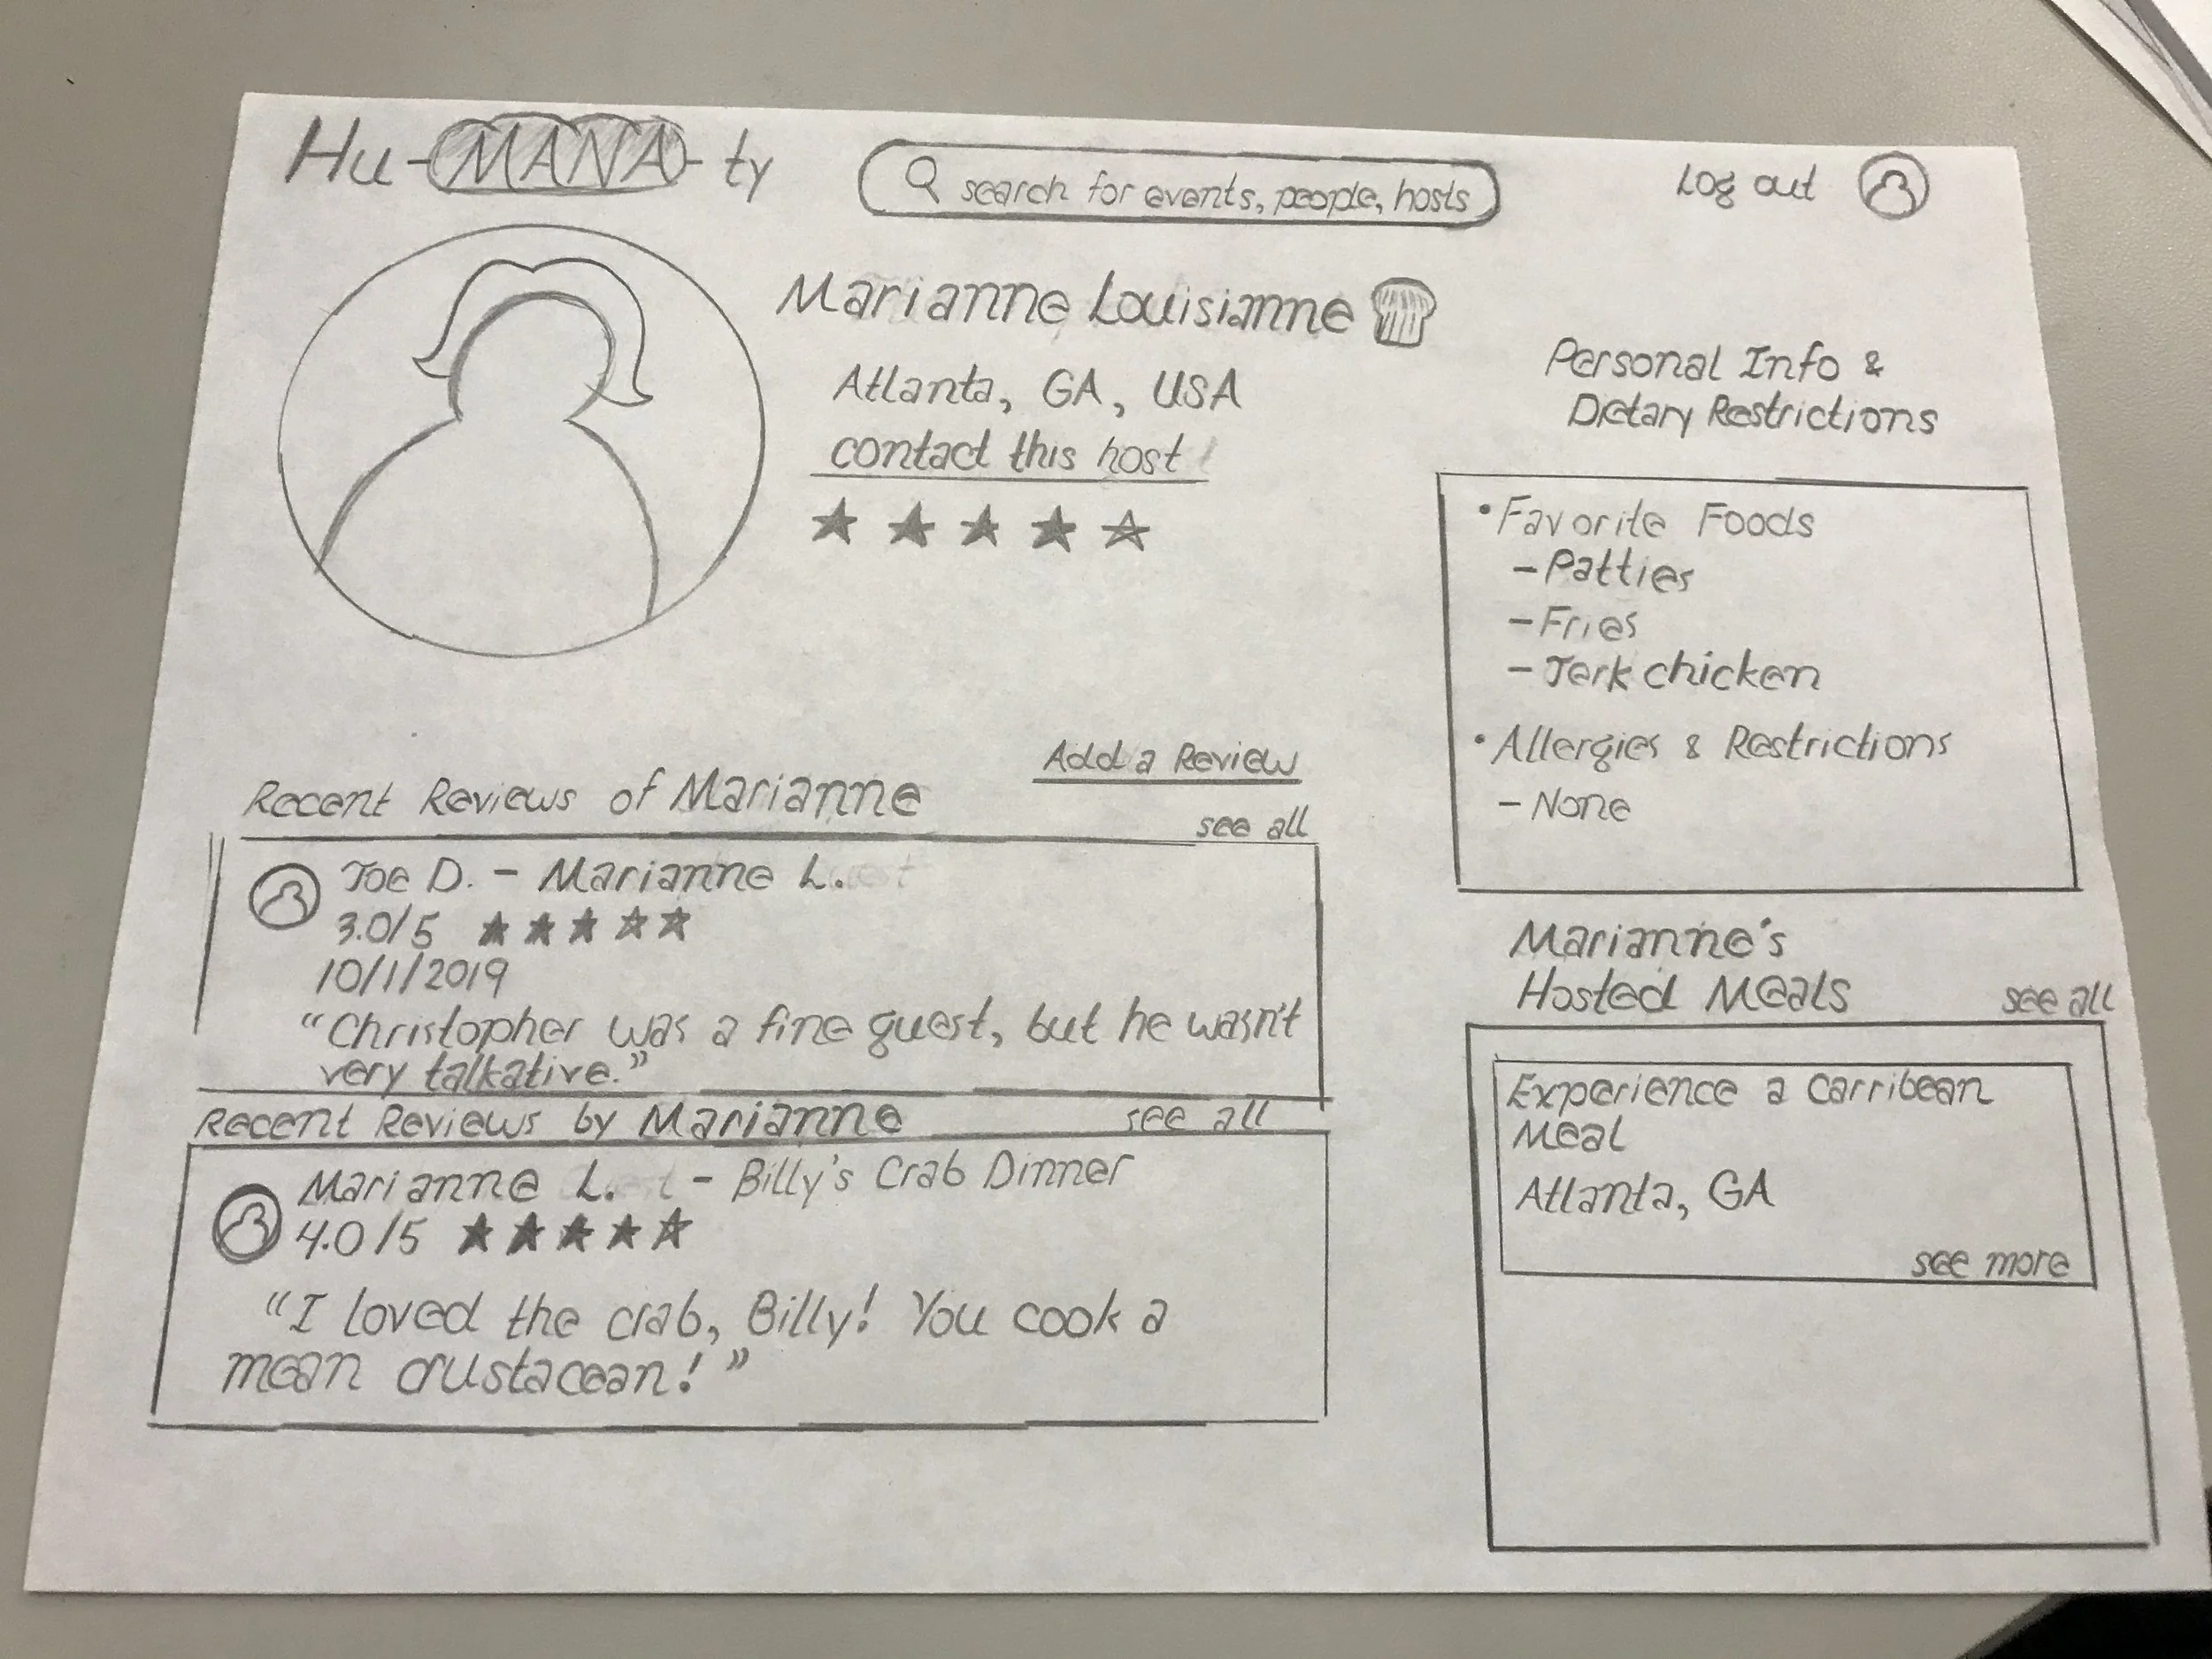 Hu-MANA-ty
search for events, people, hosts
Log out
Marianne Louisianne
Atlanta, GA, USA
contact this host
Personal Info &
Dietary Restrictions
• Favorite Foods
- Patties
- Fries
- Jerk chicken
• Allergies & Restrictions
- None
Add a Review
Recent Reviews of Marianne
see all
Joe D. - Marianne L.
3.0/5
10/1/2019
"Christopher was a fine guest, but he wasn't
very talkative."
Recent Reviews by Marianne see all
Marianne L. - Billy's Crab Dinner
4.0/5
"I loved the crab, Billy! You cook a
mean crustacean!"
Marianne's
Hosted Meals see all
Experience a Carribean
Meal
Atlanta, GA
see more